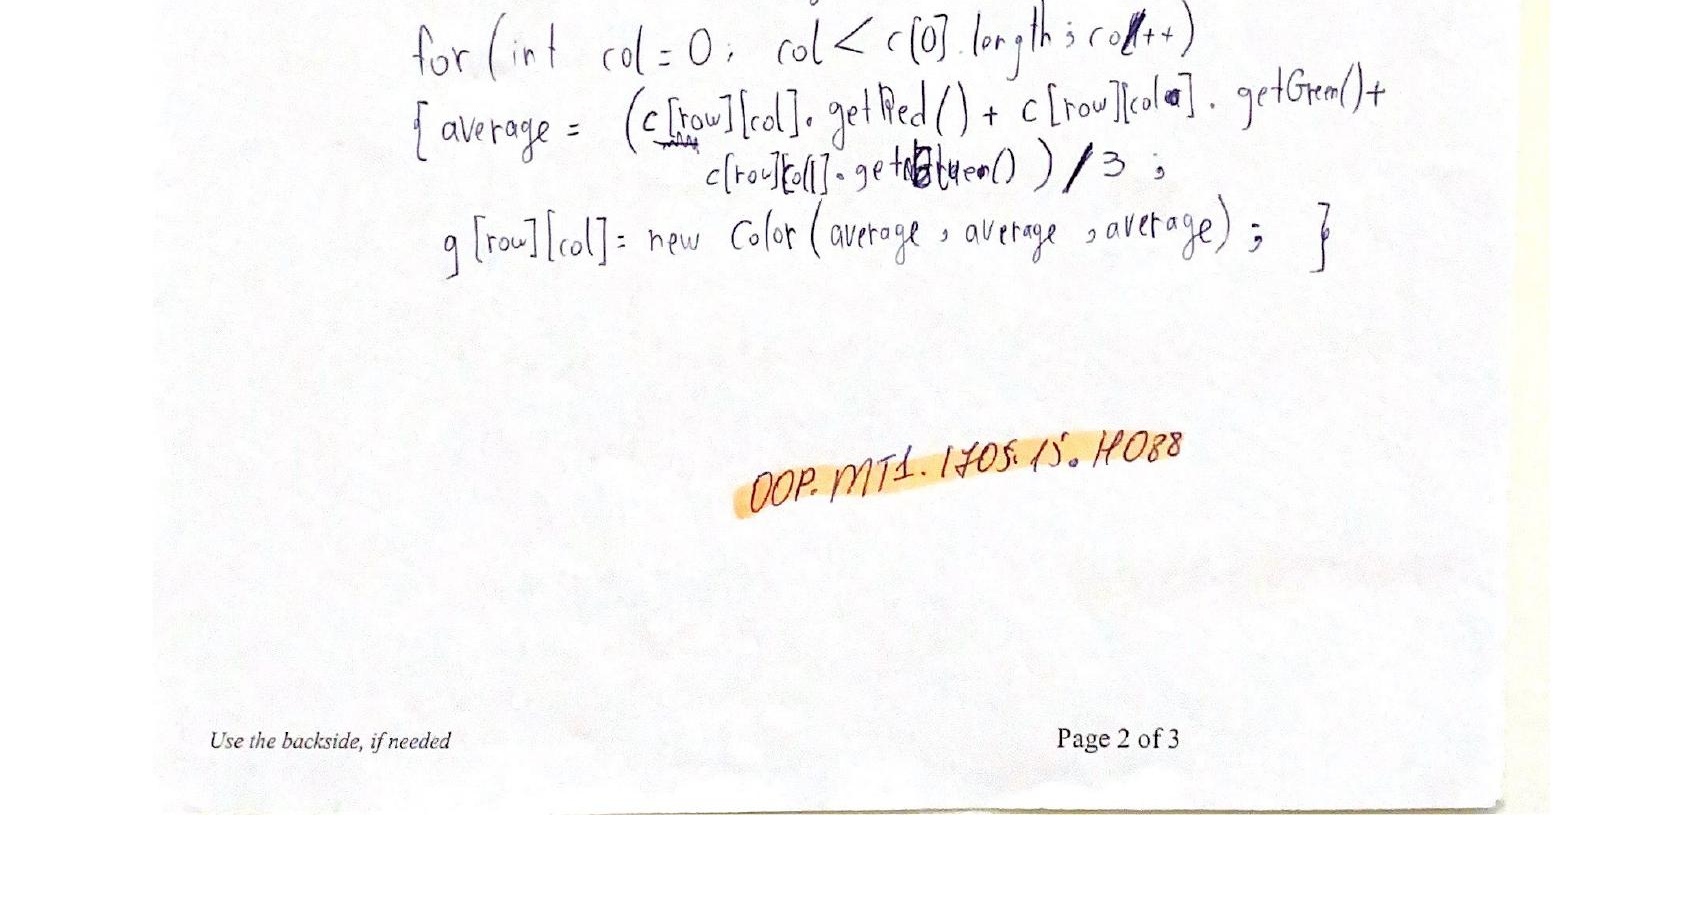 for (int col = 0; col < c[0].length; col++)
{ average = (c[row][col].getRed() + c[row][col].getGreen() +
c[row][col]. ) / 3 ;
g[row][col] = new Color (average , average , average) ; }
OOP.MT1.1705.15.H088
Use the backside, if needed
Page 2 of 3